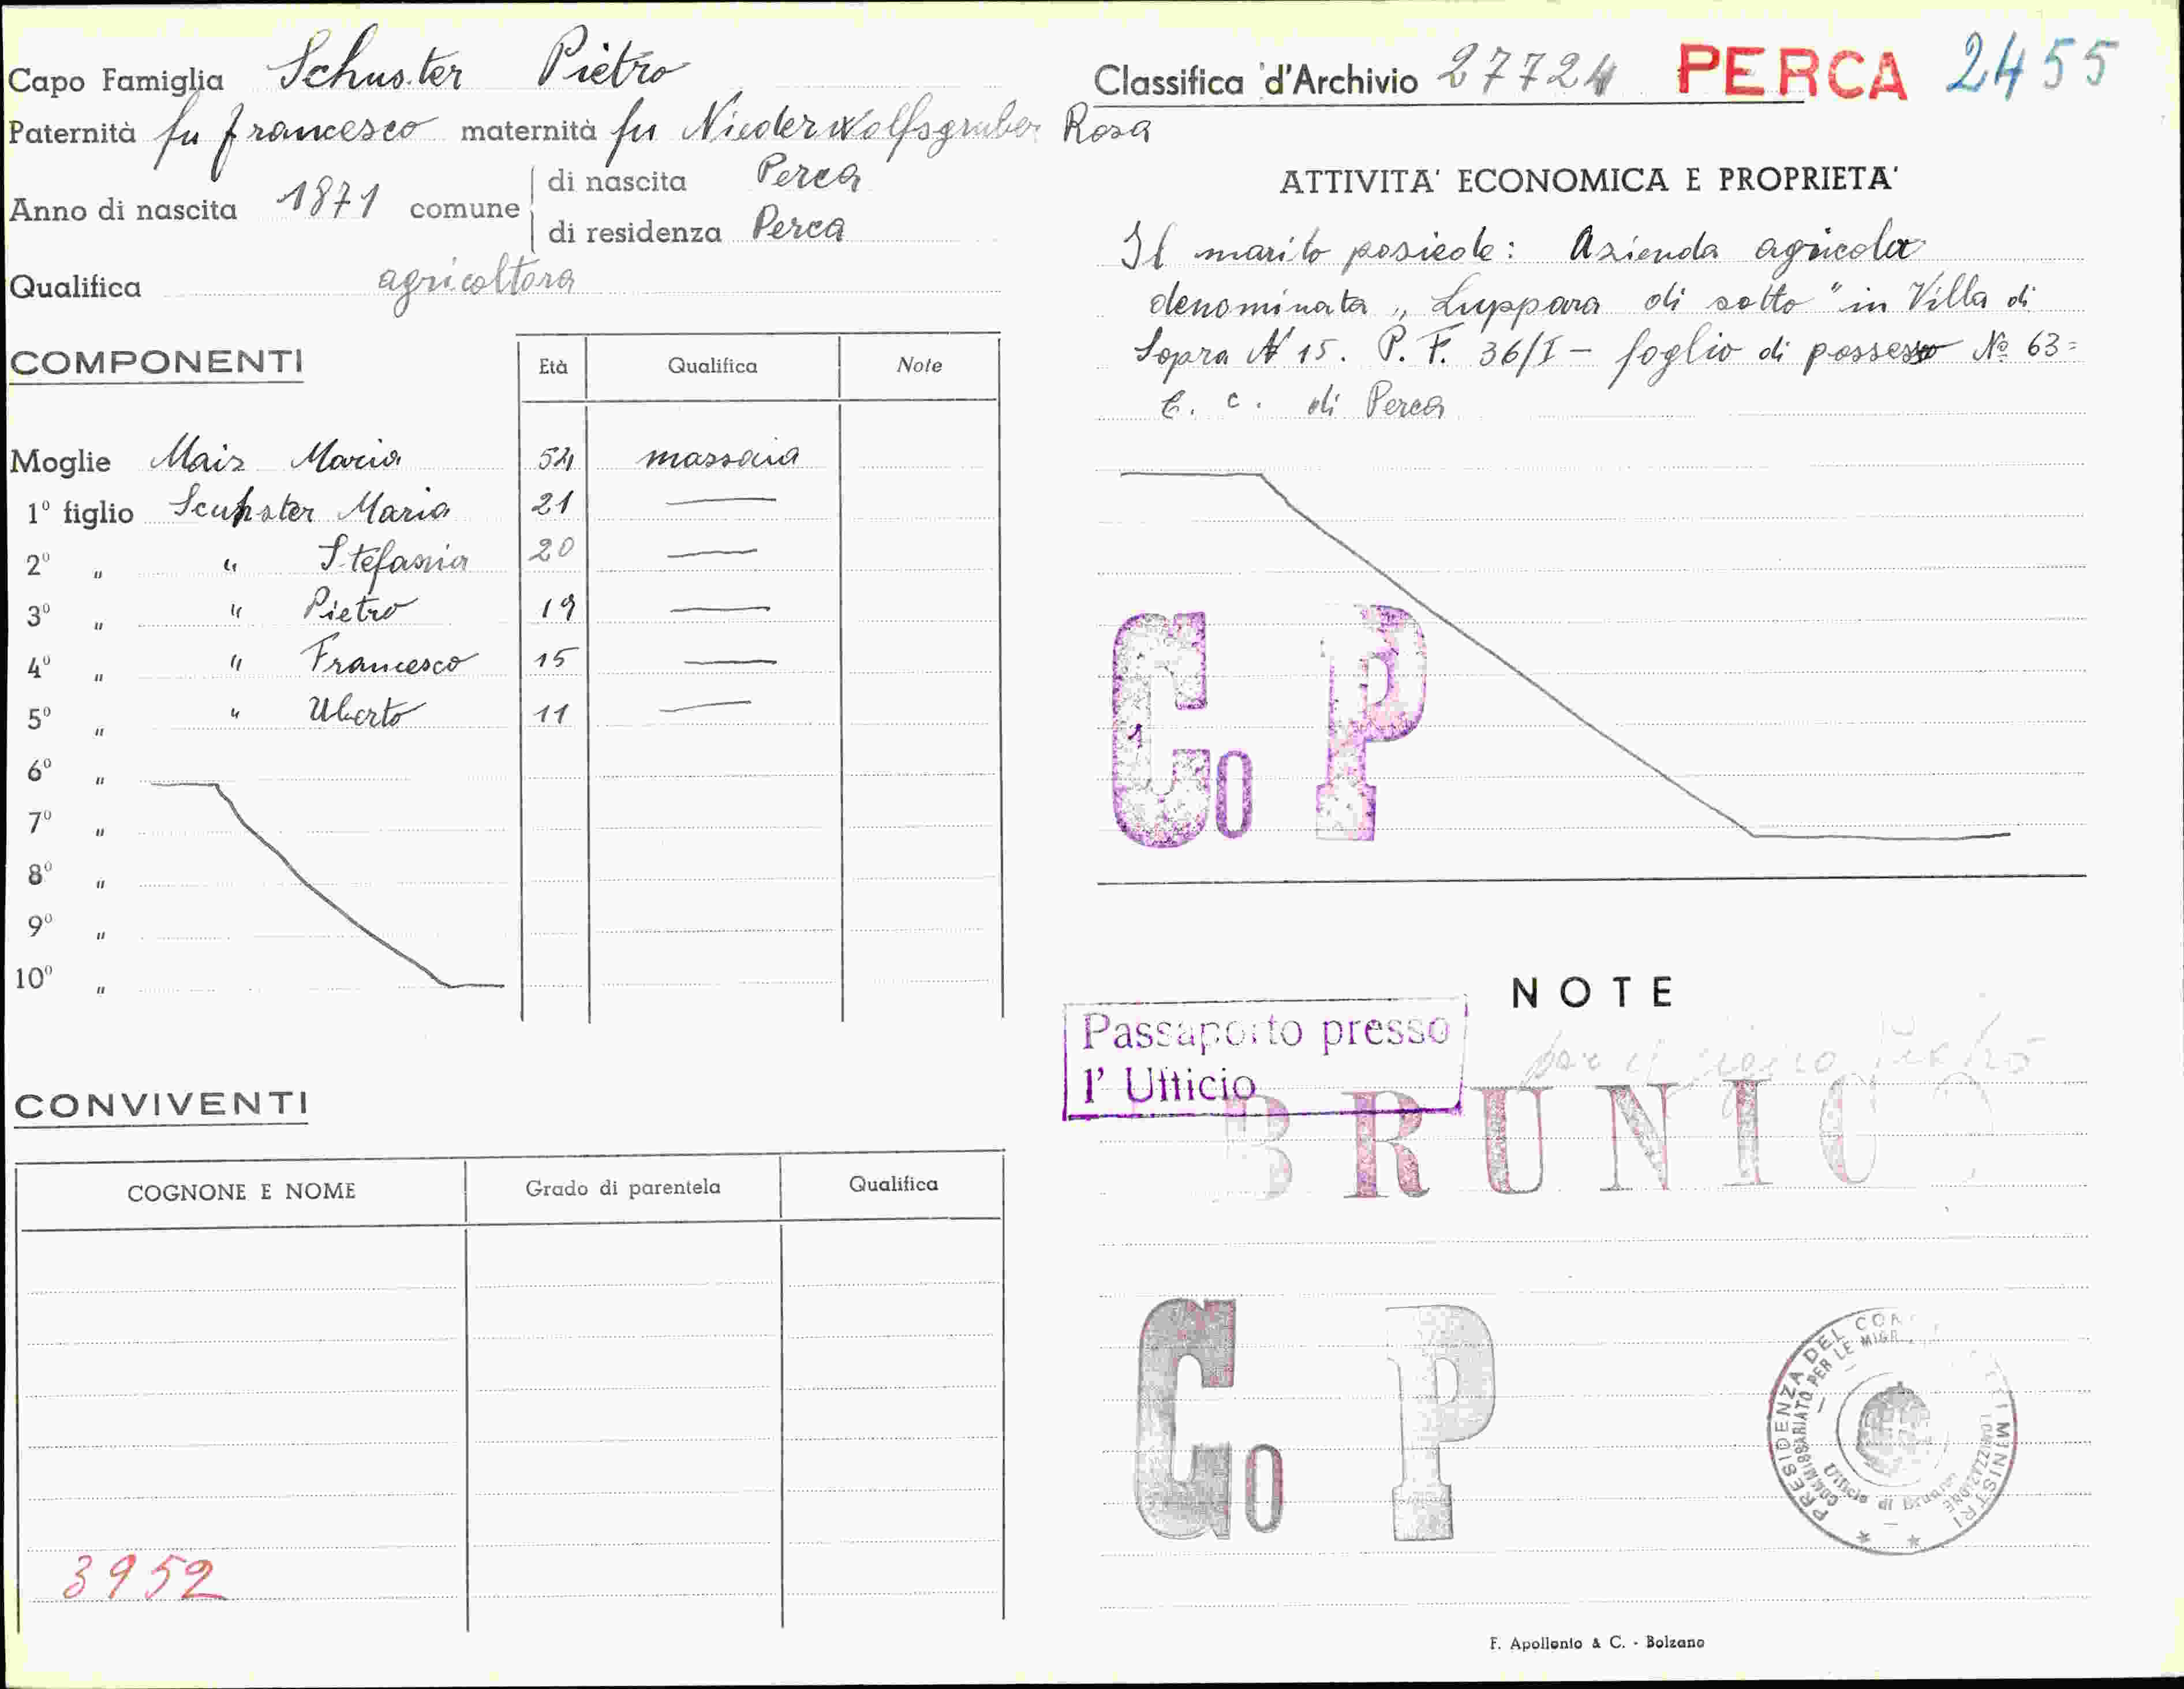 Capo Famiglia Schuster Pietro
Paternità fu Francesco maternità fu Niederwolfsgruber Rosa
Anno di nascita 1871 comune di nascita Perca
di residenza Perca
Qualifica agricoltore
COMPONENTI
Età Qualifica Note
Moglie Mair Maria 54 massaia
1º figlio Scuhster Maria 21 —
2º „ “ Stefania 20 —
3º „ “ Pietro 19 —
4º „ “ Francesco 15 —
5º „ “ Uberto 11 —
6º „
7º „
8º „
9º „
10º „
CONVIVENTI
COGNONE E NOME Grado di parentela Qualifica
3952
Classifica d'Archivio 27724 PERCA 2455
ATTIVITA' ECONOMICA E PROPRIETA'
Il marito possiede: Azienda agricola
denominata „ Luppara di sotto " in Villa di
Sopra Nº 15. P. F. 36/I — foglio di possesso Nº 63=
C. C. di Perca
Co P
NOTE
Passaporto presso
l' Ufficio
BRUNICO
Co P
PRESIDENZA DEL CONSIGLIO DEI MINISTRI
COMMISSARIATO PER LE MIGR
Ufficio di Brunico
F. Apollonio & C. - Bolzano